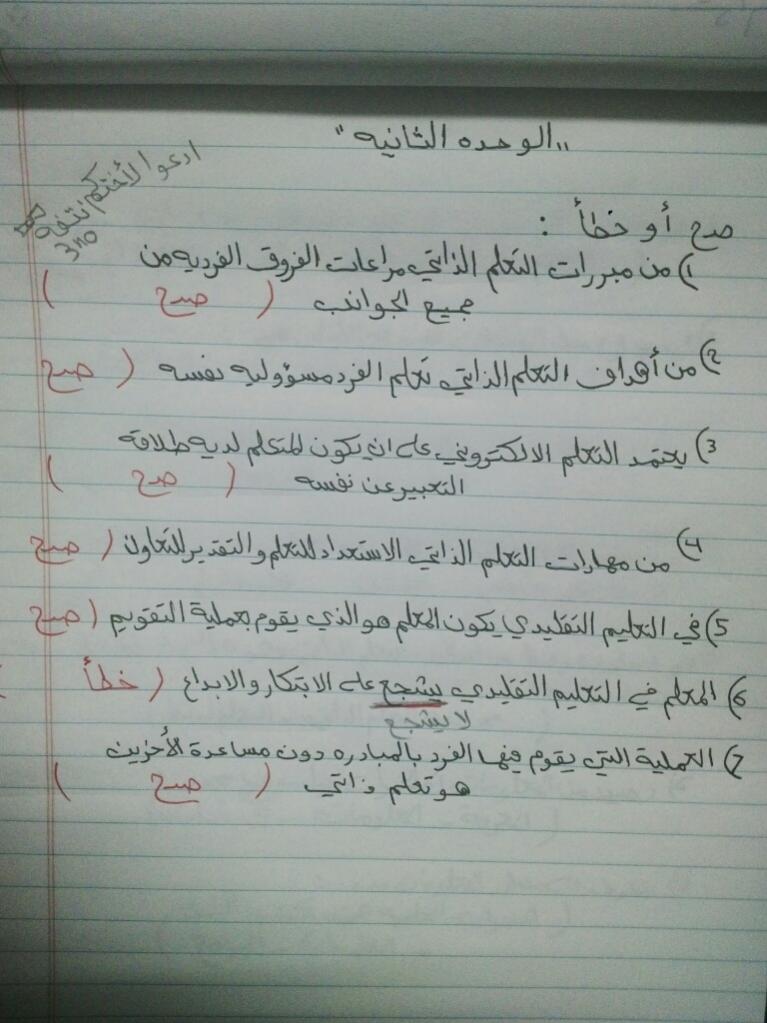 ,, الوحده الثانيه "
ادعوا لأختكم نتفه
3no
صح أو خطأ :
1) من مبررات التعلم الذاتي مراعات الفروق الفرديه من
جميع الجوانب ( صح )
2) من أهداف التعلم الذاتي تعلم الفرد مسؤوليه نفسه ( صح
3) يعتمد التعلم الالكتروني على ان يكون للمتعلم لديه طلاقه
التعبير عن نفسه ( صح )
4) من مهارات التعلم الذاتي الاستعداد للتعلم والتقدير للتعاون ( صح
5) في التعليم التقليدي يكون المعلم هو الذي يقوم بعملية التقويم ( صح
6) المعلم في التعليم التقليدي يشجع على الابتكار والابداع ( خطأ )
لا يشجع
7) العملية التي يقوم فيها الفرد بالمبادره دون مساعدة الأخرين
هو تعلم ذاتي ( صح )